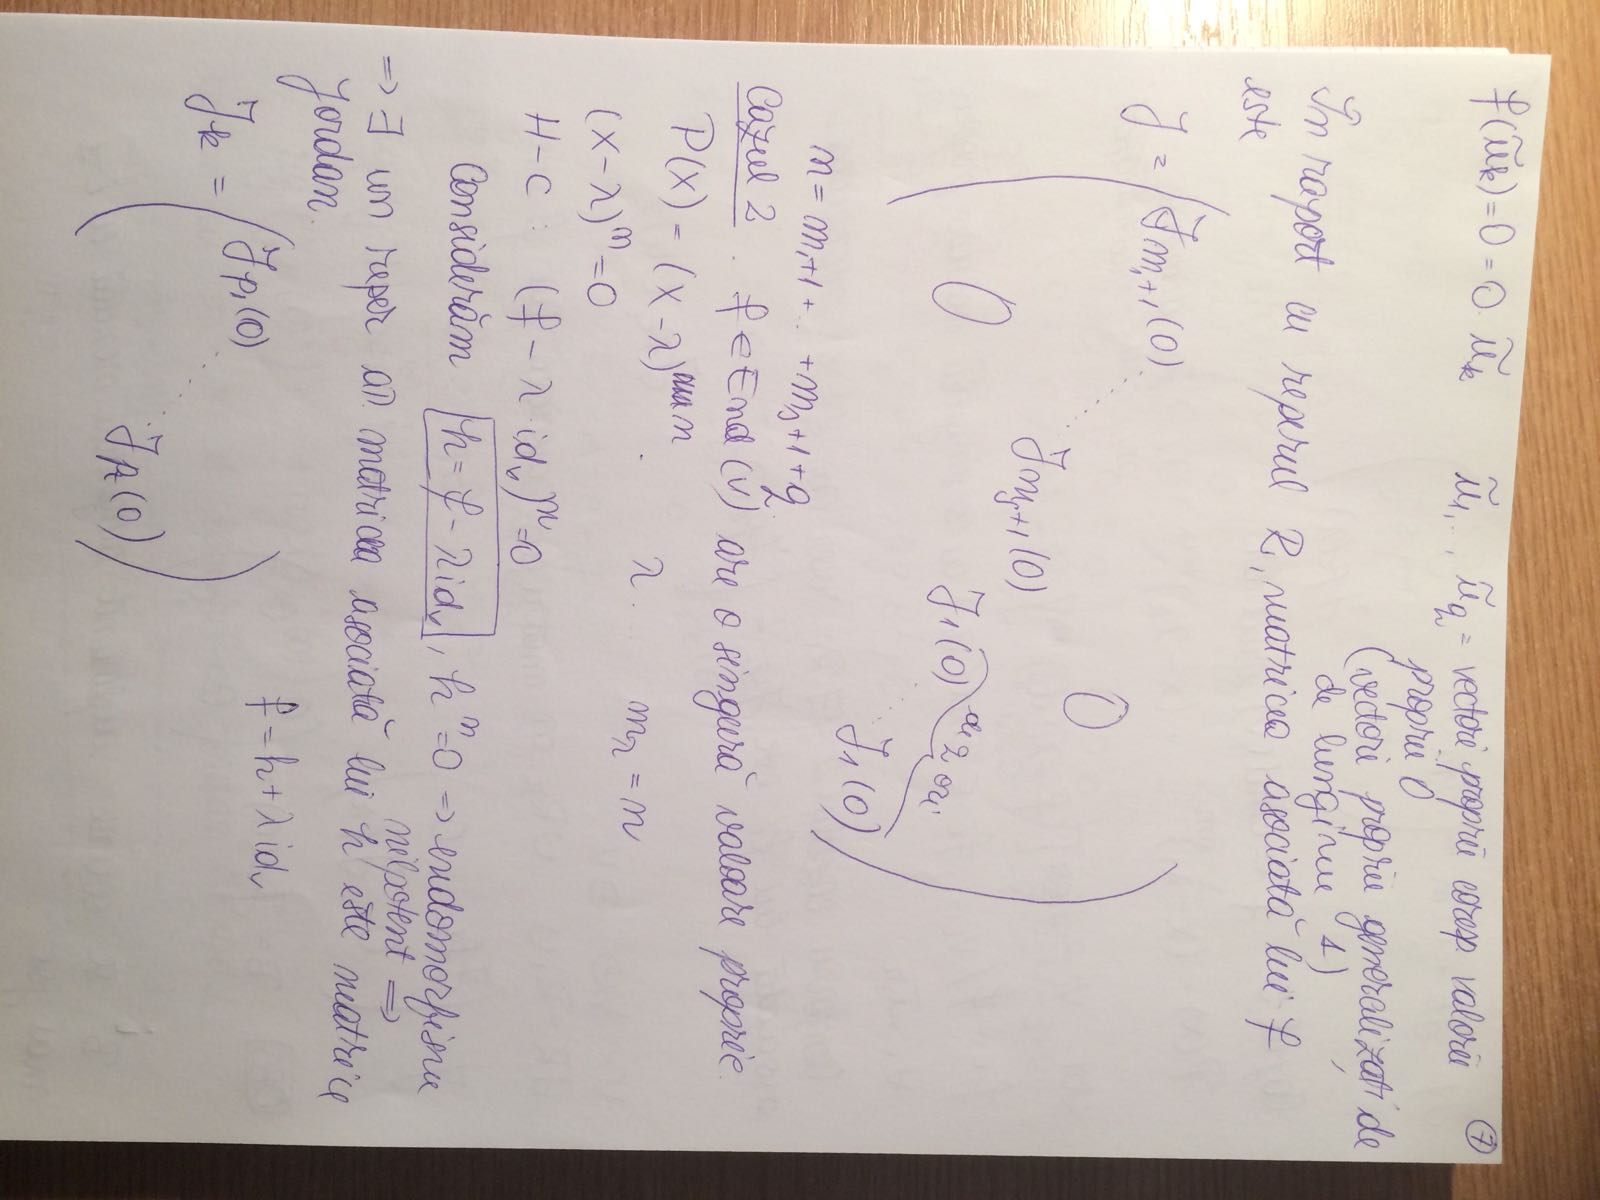 ⑦
f(ũk) = 0 = 0·ũk   ũ1, .., ũq = vectori proprii coresp valorii
proprii 0
(vectori proprii generalizați de
de lungime 1)
În raport cu reperul R, matricea asociată lui f
este
J = ( Jm1+1(0)
Jmr+1(0)   0
0   J1(0)
de q ori
J1(0) )
n = m1+1+ .. +mr+1+q
Cazul 2. f ∈ End(V) are o singură valoare proprie.
P(X) = (X-λ)^n
(X-λ)^n = 0   λ   mλ = n
H-C: (f - λ idV)^n = 0
Considerăm h = f - λ idV, h^n = 0 ⇒ endomorfism
nilpotent ⇒
⇒ ∃ un reper aî matricea asociată lui h este matrice
Jordan.
f = h + λ idV
Jh = ( Jp1(0)
Jpt(0) )